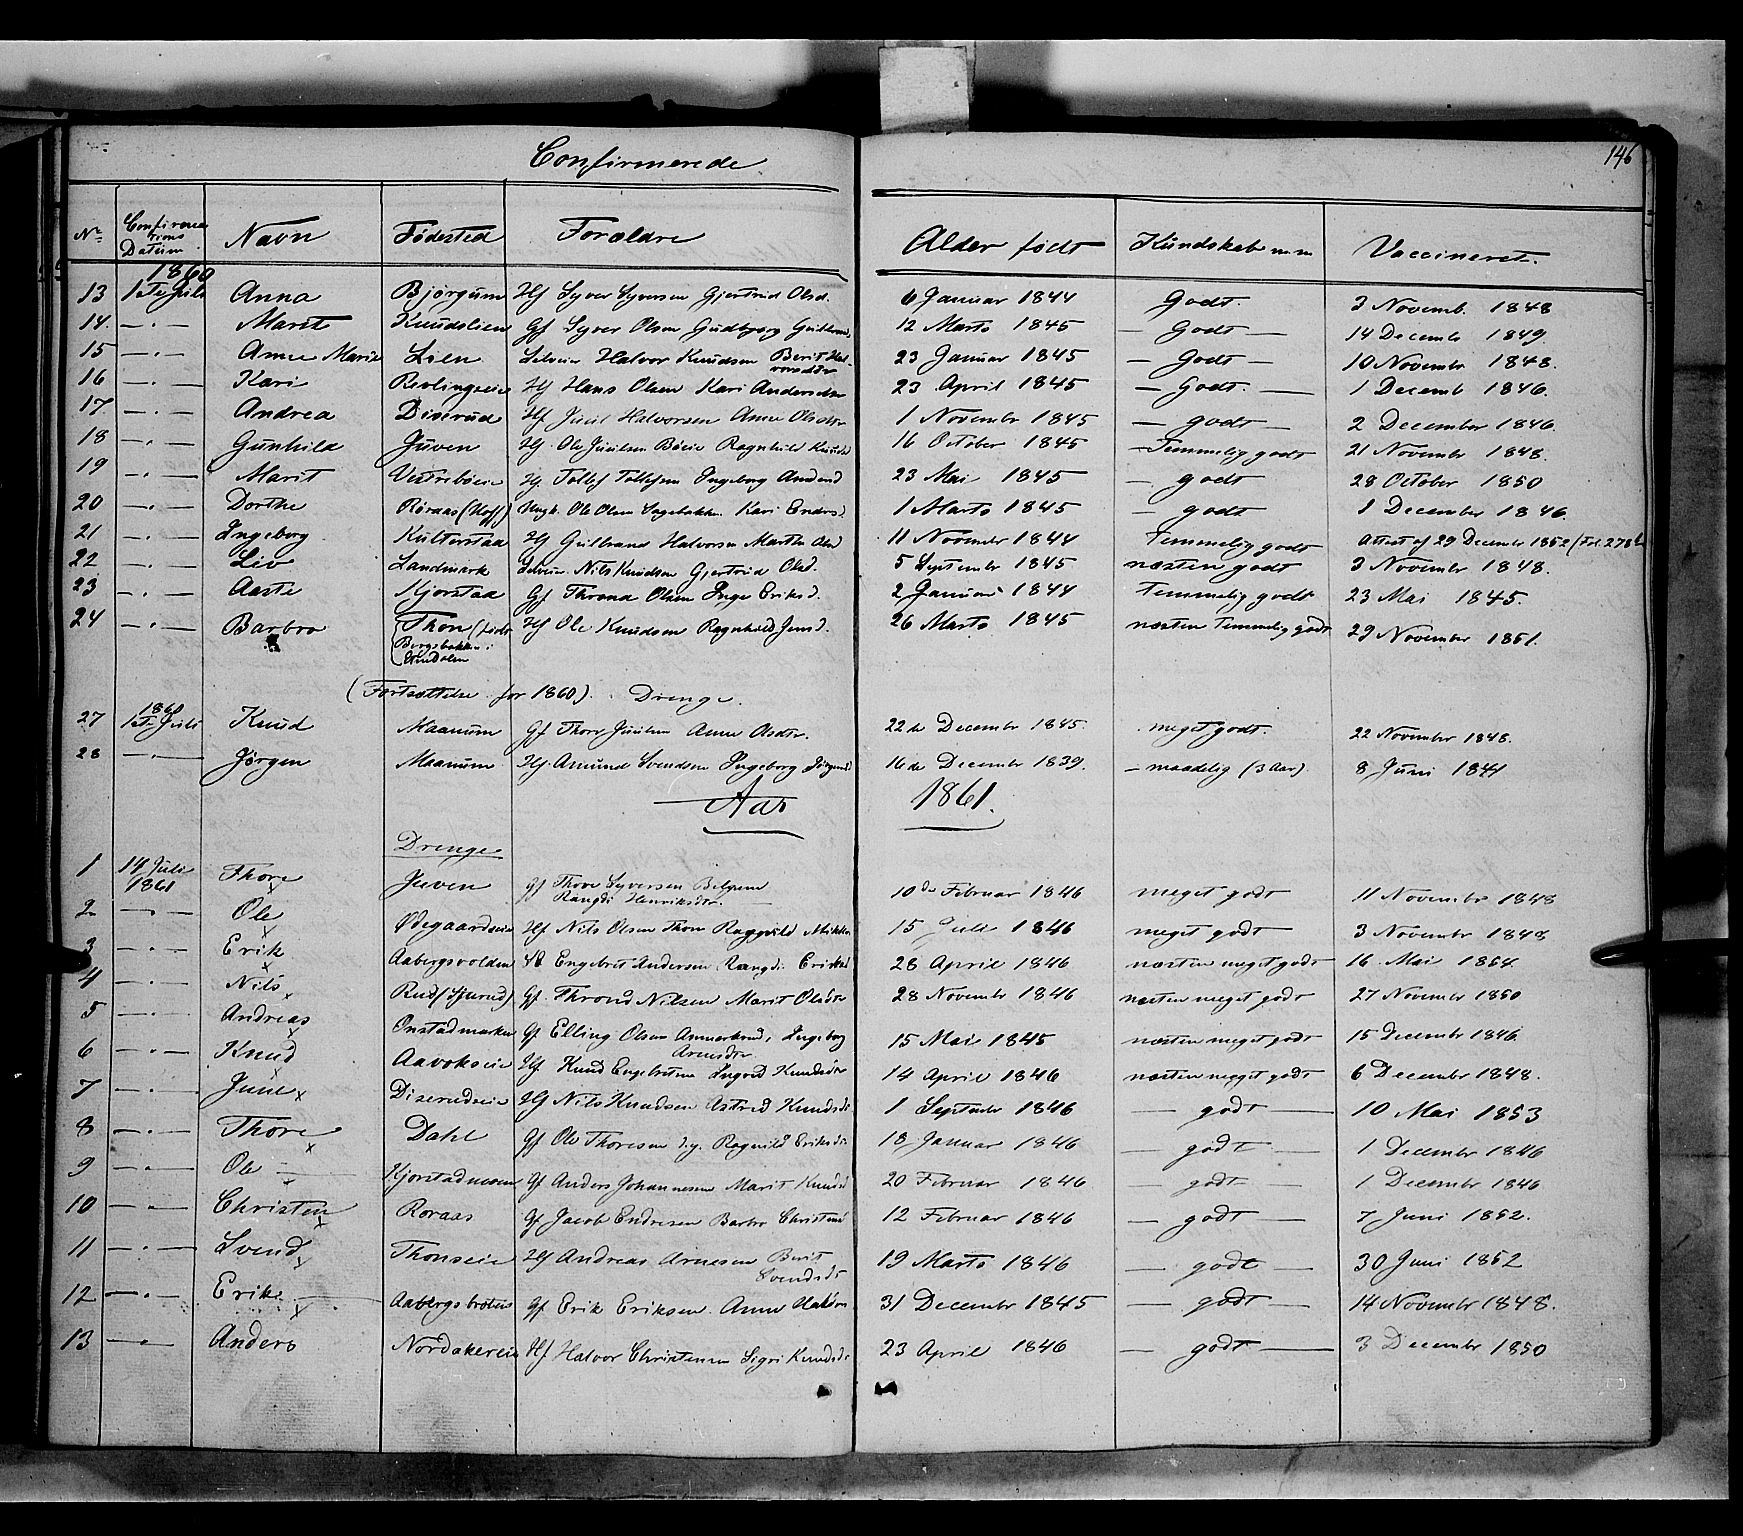 146
Confirmerede
No Confirmations Datum Navn Fødested Forældre Alder født Kundskab m.m. Vaccineret
1860
13 1ste Juli Anna Bjørgum Hf Syver Syversen Gjertrud Olsd. 6 Januar 1844 Godt. 3 Novemb. 1848
14. — " — Marit Knudslien Gf Syver Olsen Gudbjørg 12 Marts 1845 — Godt — 14 Decembr 1849.
15 — " — Anne Marie Lien Halvor Knudsen Berit Hal-
vorsdtr 23 Januar 1845 — Godt — 10 November 1848.
16 — " — Kari Hf Hans Olsen Kari Andersdtr 23 April 1845 — Godt. — 1 Decemb 1846.
17 — " — Andrea Diserud Hf Juul Halvorsen Anne Olsdtr 1 Novembr 1845 — godt — 2 December 1846.
18 — " — Gunhild Juven Hf. Ole Juulsen Bøeie Ragnhild Knudsd 16 October 1845 — Temmelig godt 21 Novembr 1848.
19 — " — Marit Vestrebøeie Hf Tollef Tollefsen Ingeborg Amund 23 Mai 1845 — godt 28 October 1850
20 — " — Dorthe Røraas (Hoff) Ungk. Ole Olsen Kari Endresd 1 Marts 1845 — godt 1 December 1846.
21 — " — Ingeborg Kulterstad Hf Gulbrand Halvorsen Marthe Olsd 11 Novembr 1844 Temmelig godt Attest af 29 December 1852 (Fol. 278b
22 — " — Liv Landmark Nils Knudsen Gjertrud Olsd. 5 September 1845 næsten godt 3 November 1848.
23 — " — Aaste Kjørstad Gf Thrond Olsen Inge Eriksd. 2 Januar 1844 Temmelig godt 23 Mai 1845.
24 — " — Barbro Thon (født
Bergsbakken i
Hf Ole Knudsen Ragnhild Jensd. 26 Marts 1845 næsten Temmelig godt 29 November 1851.
(Fortsættelse for 1860). Drenge.
1860
27 1ste Juli Knud Maanum Gf Thore Juulsen Anne Olsdtr. 22de December 1845. meget godt. 22 Novembr 1848.
28 — " — Jørgen Maanum Hf. Amund Svendsen Ingeborg Jørgensd 16de December 1839. — maadelig (3 Aar). 8 Juni 1841
Aar 1861.
Drenge
1 14 Juli
1861 Thore Juven Gf Thore Syversen
Rangdi Henriksdtr. 10de Februar 1846 meget godt 11 Novembr 1848
2 — " — Ole Ødegaardseie Hf Nils Olsen Thon Ragnhild 15 Juli 1846 meget godt 3 Novembr 1848
3 — " — Erik Aabergsvolden Engebret Andersen Rangdi Eriksd 28 April 1846 næsten meget godt 16 Mai 1854.
4 — " — Nils Rud Gf. Thrond Nilsen Marit Olsdtr 28 Novembr 1846 næsten meget godt 27 November 1850
5 — " — Andreas Onstadmarken Gf Elling Olsen Ingeborg
Arnesdtr 15 Mai 1845 næsten meget godt 15 Decembr 1846
6 — " — Knud Aavokseie Hf Knud Engebretsen Ingrid Knudsdtr 14 April 1846 næsten meget godt 6 December 1848.
7 — " — Juul Diserudseie Hf Nils Knudsen Astrid Knudsdr 1 Septembr 1846 — godt — 10 Mai 1853
8 — " — Thore Dahl Gf Ole Thoresen Ragnild Eriksdr 18 Januar 1846 — godt — 1 Decembr 1846
9 — " — Ole Kjørstadnesen Gf Anders Johannesen Marit Knudsd 20 Februar 1846 — godt — 1 Decembr 1846
10 — " — Christen Roraas Gf Jacob Endresen Barbro Christensd 12 Februar 1846 — godt — 7 Juni 1852.
11 — " — Svend Thonseie Hf Andreas Arnesen Berit
Svendsdr 19 Marts 1846 — godt — 30 Juni 1852
12 — " — Erik Aabergsbråten Gf Erik Eriksen Anne 31 Decembr 1845 — godt — 14 Novembr 1848.
13 — " — Anders Nordakereie Hf Halvor Christensen Sigri Knudsdr 23 April 1846 — godt — 3 Decembr 1850